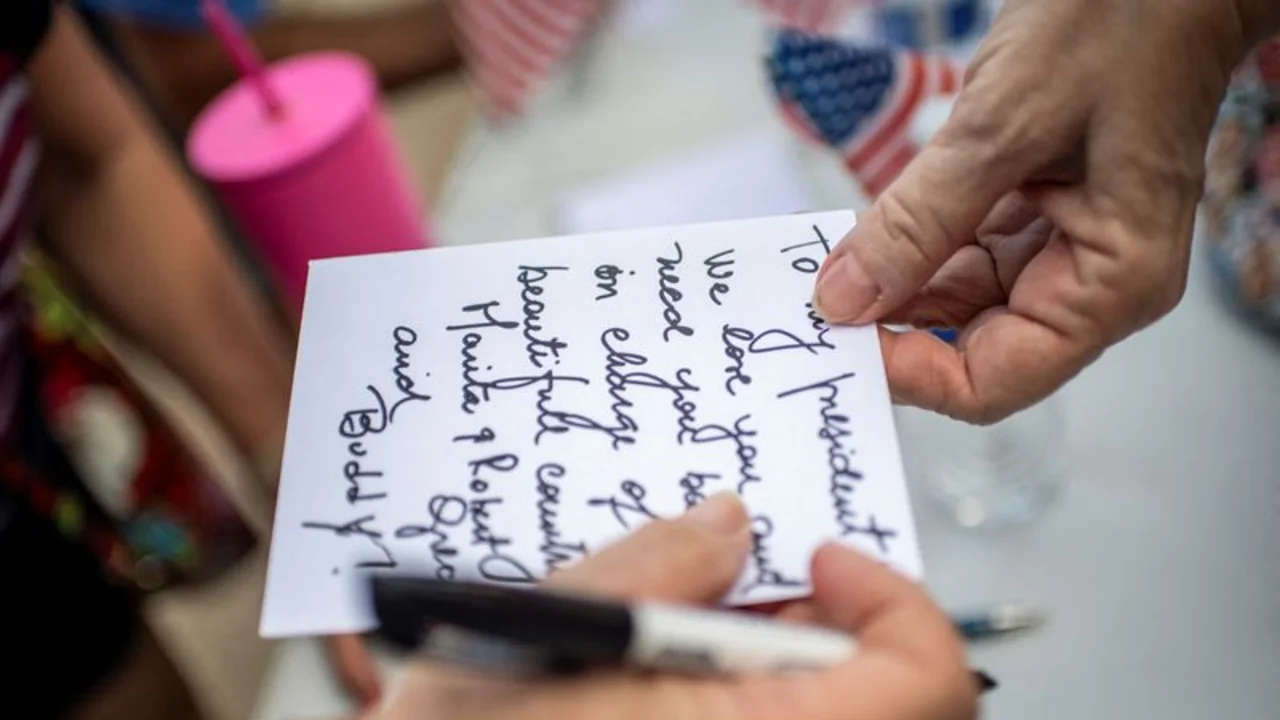 To my president
We love you and
need you
in charge of
beautifull
Marita & Robert
and
Buddy!